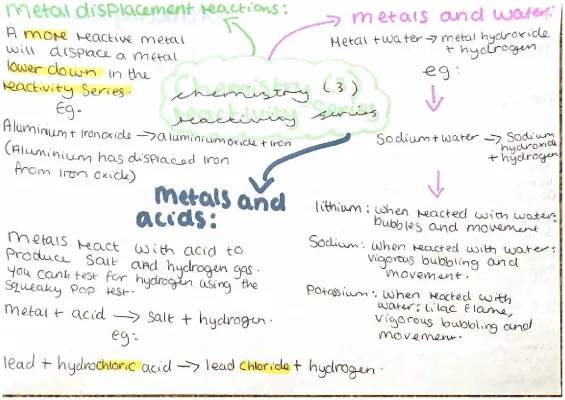 metal displacement reactions:
A more reactive metal
will displace a metal
lower down in the
reactivity series.
Eg.
Aluminium + Iron oxide → aluminium oxide + iron
(Aluminium has displaced iron
from iron oxide)
chemistry (3)
reactivity series
metals and water:
Metal + water → metal hydroxide
+ hydrogen
eg:
Sodium + water → Sodium
hydroxide
+ hydrogen
lithium: when reacted with water:
bubbles and movement
Sodium: when reacted with water:
vigorous bubbling and
movement.
Potassium: when reacted with
water: lilac flame,
vigorous bubbling and
movement.
metals and
acids:
Metals react with acid to
produce salt and hydrogen gas.
You can test for hydrogen using the
squeaky pop test.
metal + acid → salt + hydrogen.
eg:
lead + hydrochloric acid → lead chloride + hydrogen.